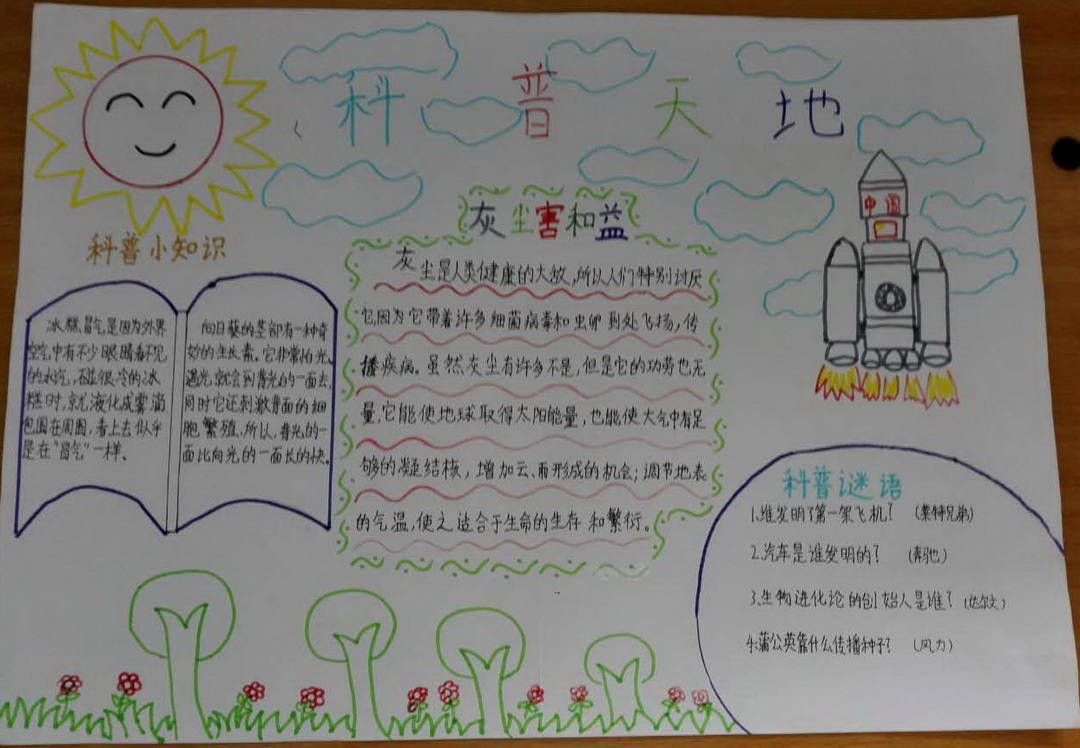 科普天地
中国
科普小知识
冰糕冒气是因为外界
空气中有不少眼睛看不见
的水汽，碰很冷的冰
糕时，就液化成雾滴
包围在周围，看上去似乎
是在"冒气"一样。
向日葵的茎部有一种奇
妙的生长素。它非常怕光。
遇光就会到背光的一面去，
同时它还刺激背面的细
胞繁殖，所以，背光的一
面比向光的一面长的快。
灰尘害和益
灰尘是人类健康的大敌，所以人们特别讨厌
它，因为它带着许多细菌病毒和虫卵到处飞扬，传
播疾病。虽然灰尘有许多不是，但是它的功劳也无
量，它能使地球取得太阳能量，也能使大气中有足
够的凝结核，增加云、雨形成的机会；调节地表
的气温，使之适合于生命的生存和繁衍。
科普谜语
1.谁发明了第一架飞机？（莱特兄弟）
2.汽车是谁发明的？（奔驰）
3.生物进化论的创始人是谁？（达尔文）
4.蒲公英靠什么传播种子？（风力）